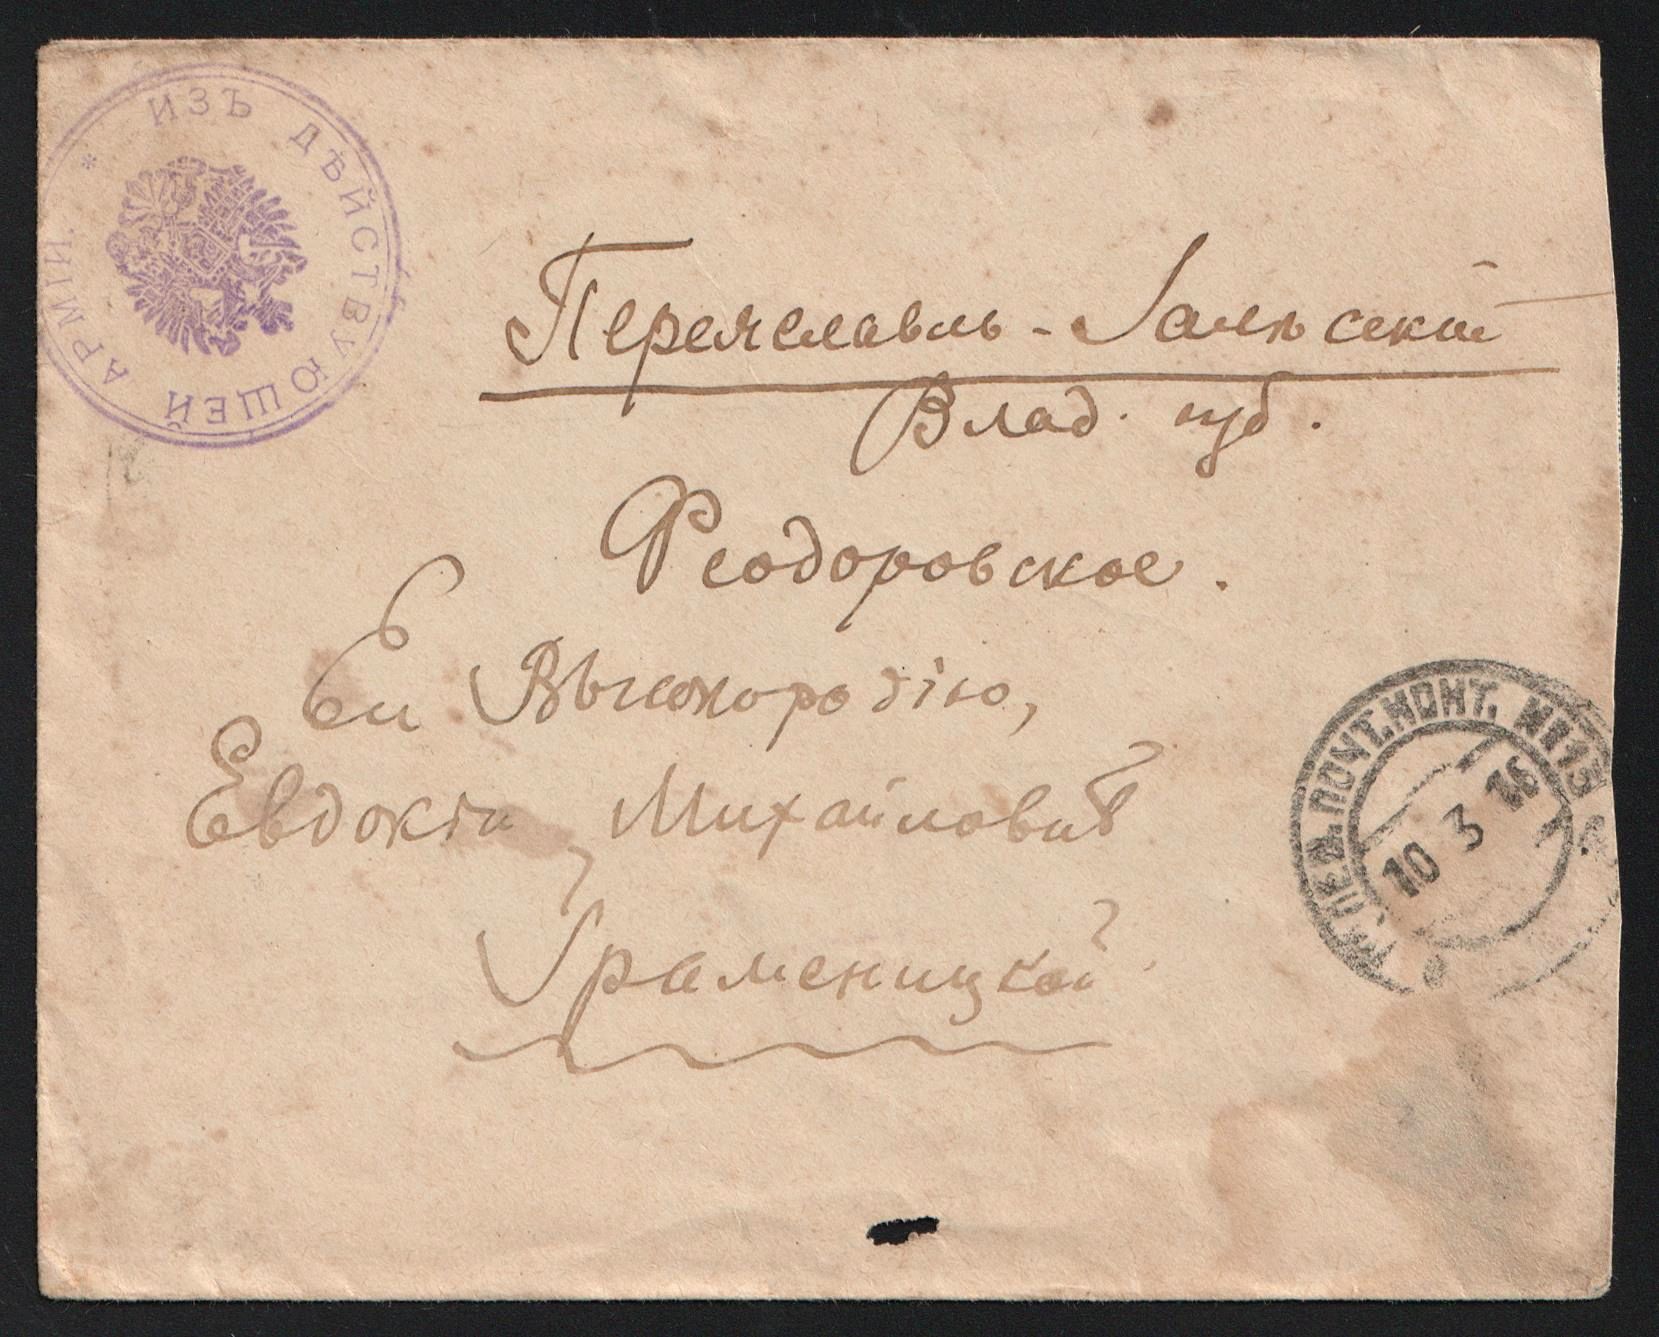 ИЗЪ ДѢЙСТВУЮЩЕЙ АРМІИ. *
Переяславль-Залѣсскій
Влад. губ.
Феодоровское.
Ея Высокородію,
Евдокіи Михайловнѣ
ПОЧТ. КОНТ.
10 3 16